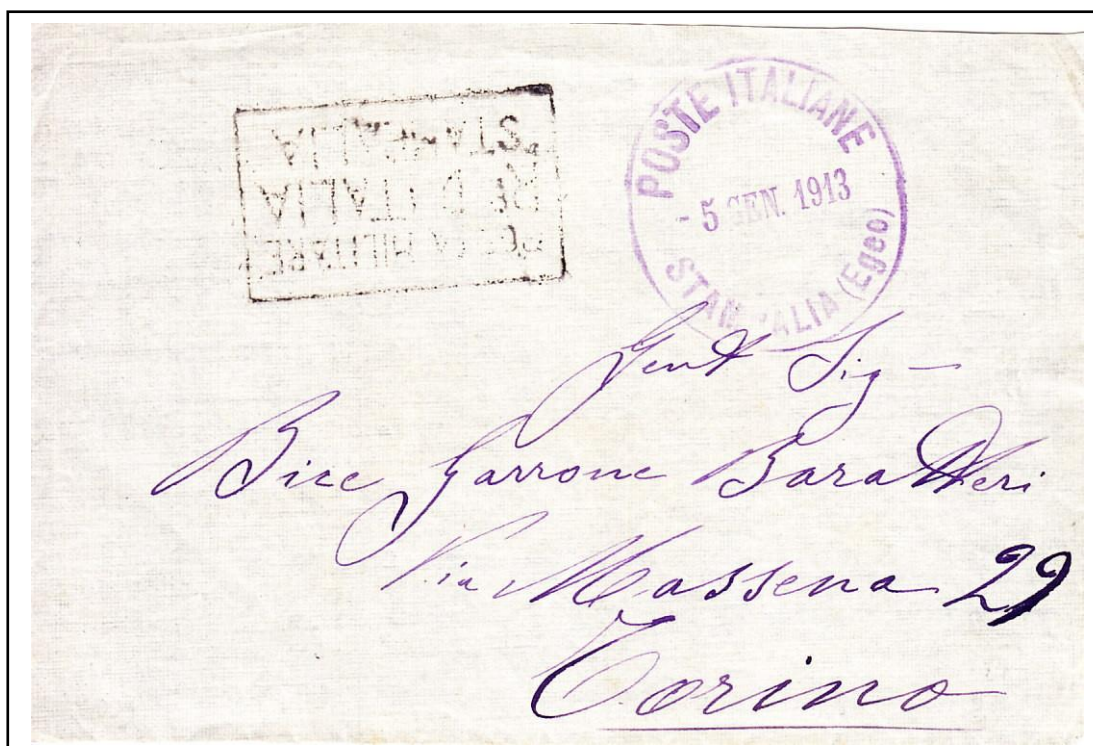 MILITARE
RE D'ITALIA
STAMPALIA
POSTE ITALIANE
- 5 GEN. 1913
STAMPALIA (Egeo)
Gent Sig -
Bice Garrone Baratteri
Via Massena 29
Torino